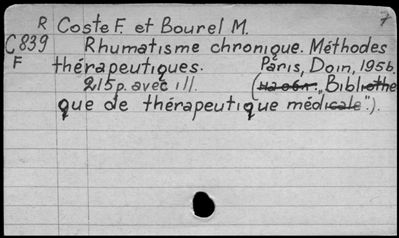 7
R Coste F. et Bourel M.
C839 Rhumatisme chronique. Méthodes
F thérapeutiques. Paris, Doin, 1956.
215 p. avec ill. (На обл.: „Bibliothe
que de thérapeutique médicale").